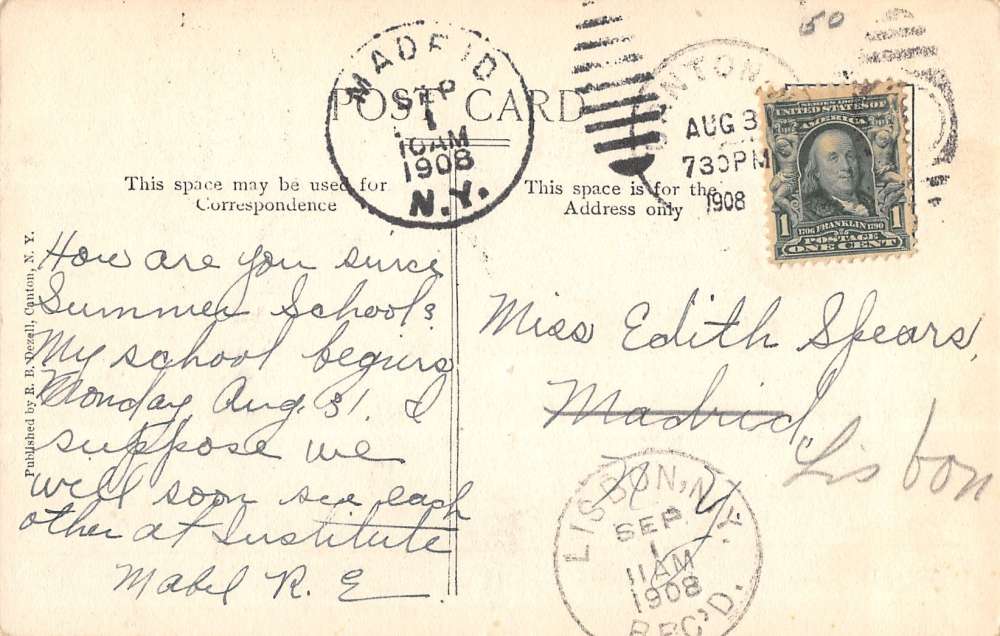 50
MADRID
SEP
1
10AM
1908
N.Y.
CANTON
AUG 3
730PM
1908
SERIES 1902
UNITED STATES OF
AMERICA
1 1
1706 FRANKLIN 1790
POSTAGE
ONE CENT
POST CARD
This space may be used for
Correspondence
This space is for the
Address only
Published by R. B. Dezell, Canton, N. Y.
How are you since
Summer School?
My school begins
Monday Aug. 31. I
suppose we
will soon see each
other at Institute
Mabel R. E
Miss Edith Spears,
Madrid,
N. Y.
Lisbon
LISBON, N.Y.
SEP
1
11AM
1908
REC'D.